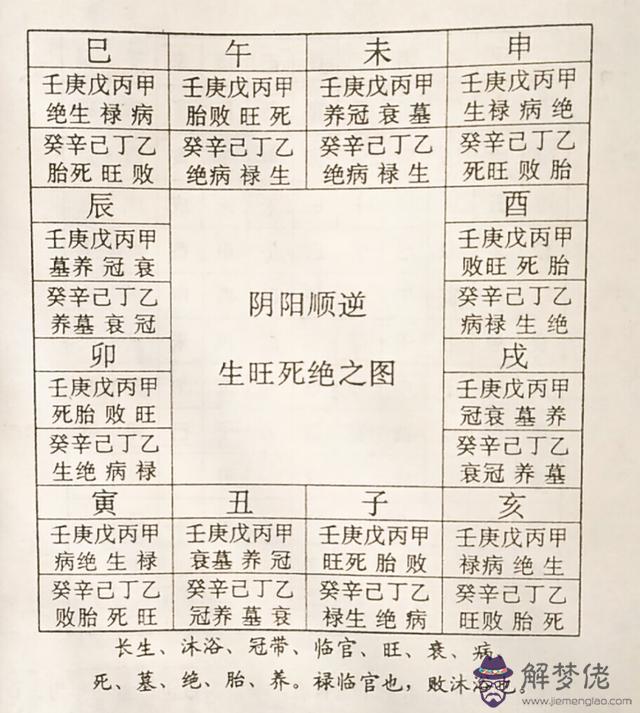 巳 午 未 申
壬庚戊丙甲 壬庚戊丙甲 壬庚戊丙甲 壬庚戊丙甲
绝生 禄 病 胎败 旺 死 养冠 衰 墓 生禄 病 绝
癸辛己丁乙 癸辛己丁乙 癸辛己丁乙 癸辛己丁乙
胎死 旺 败 绝病 禄 生 绝病 禄 生 死旺 败 胎
辰 酉
壬庚戊丙甲 壬庚戊丙甲
墓养 冠 衰 败旺 死 胎
癸辛己丁乙 癸辛己丁乙
养墓 衰 冠 病禄 生 绝
阴阳顺逆
生旺死绝之图
卯 戌
壬庚戊丙甲 壬庚戊丙甲
死胎 败 旺 冠衰 墓 养
癸辛己丁乙 癸辛己丁乙
生绝 病 禄 衰冠 养 墓
寅 丑 子 亥
壬庚戊丙甲 壬庚戊丙甲 壬庚戊丙甲 壬庚戊丙甲
病绝 生 禄 衰墓 养 冠 旺死 胎 败 禄病 绝 生
癸辛己丁乙 癸辛己丁乙 癸辛己丁乙 癸辛己丁乙
败胎 死 旺 冠养 墓 衰 禄生 绝 病 旺败 胎 死
长生、沐浴、冠带、临官、旺、衰、病、
死、墓、绝、胎、养。禄临官也，败沐浴也。
解梦佬
www.jiemenglao.com